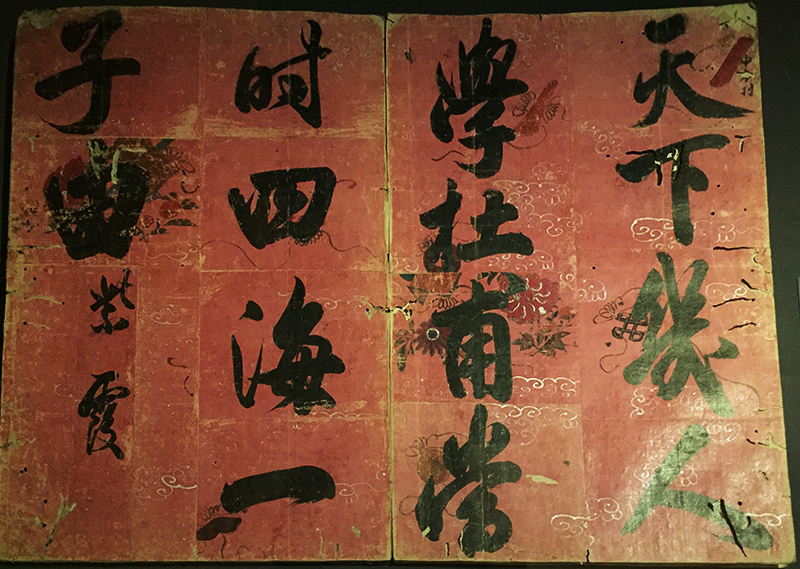 天下幾人
學杜甫當
時四海一
子由
紫霞